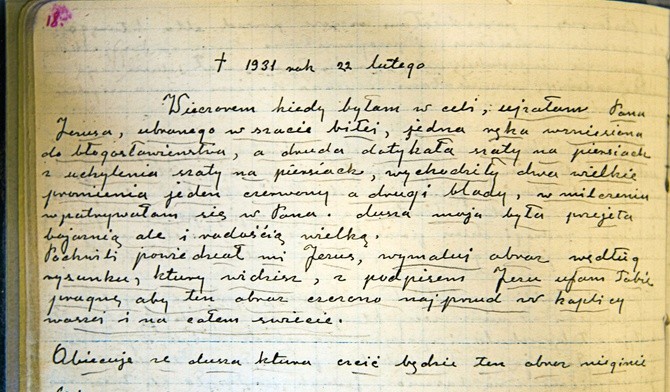 18.
† 1931 rok 22 lutego
Wieczorem kiedy byłam w celi, ujrałam Pana
Jezusa, ubranego w szacie biłej, jedna ręka wzniesiona
do błogosławieństwa, a druda dotykała szaty na piersiach
z uchylenia szaty na piersiach, wychodziły dwa wielkie
promienia jeden czerwony a drugi blady, w milczeniu
wpatrywałam się w Pana. dusza moja była przejęta
bojaznią ale i radością wielką.
Pochwili powiedział mi Jezus, wymaluj obraz według
rysunku, ktury widzisz, z podpisem Jezu ufam Tobie
pragnę aby ten obraz czczono najprzud w kaplicy
waszej i na całem swiecie.
Obiecuje ze dusza ktura czcić będzie ten obraz nie zginie